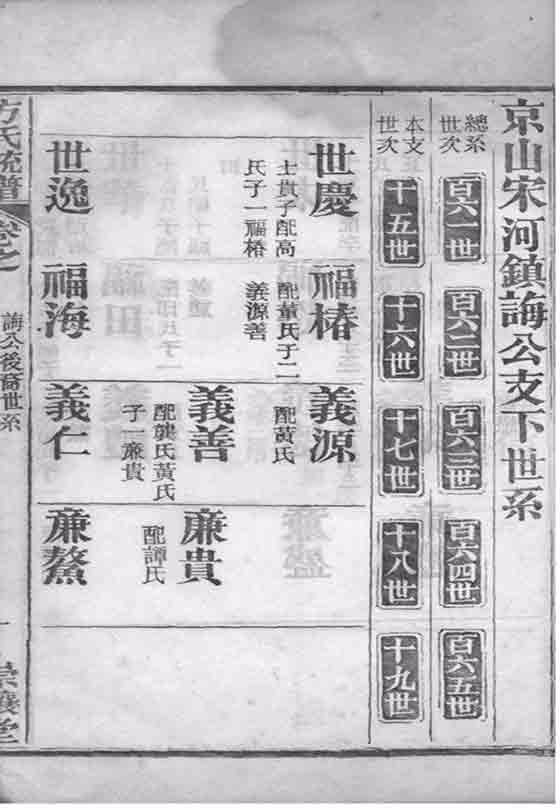 京山宋河鎮誨公支下世系
總系世次
百六一世
百六二世
百六三世
百六四世
百六五世
本支世次
十五世
十六世
十七世
十八世
十九世
世慶
士貴子配高
氏子一福椿
世逸
福椿
配董氏子二
義源善
福海
義源
配黃氏
義善
配龔氏黃氏
子一廉貴
義仁
廉貴
配譚氏
廉鰲
方氏統譜
卷之
誨公後裔世系